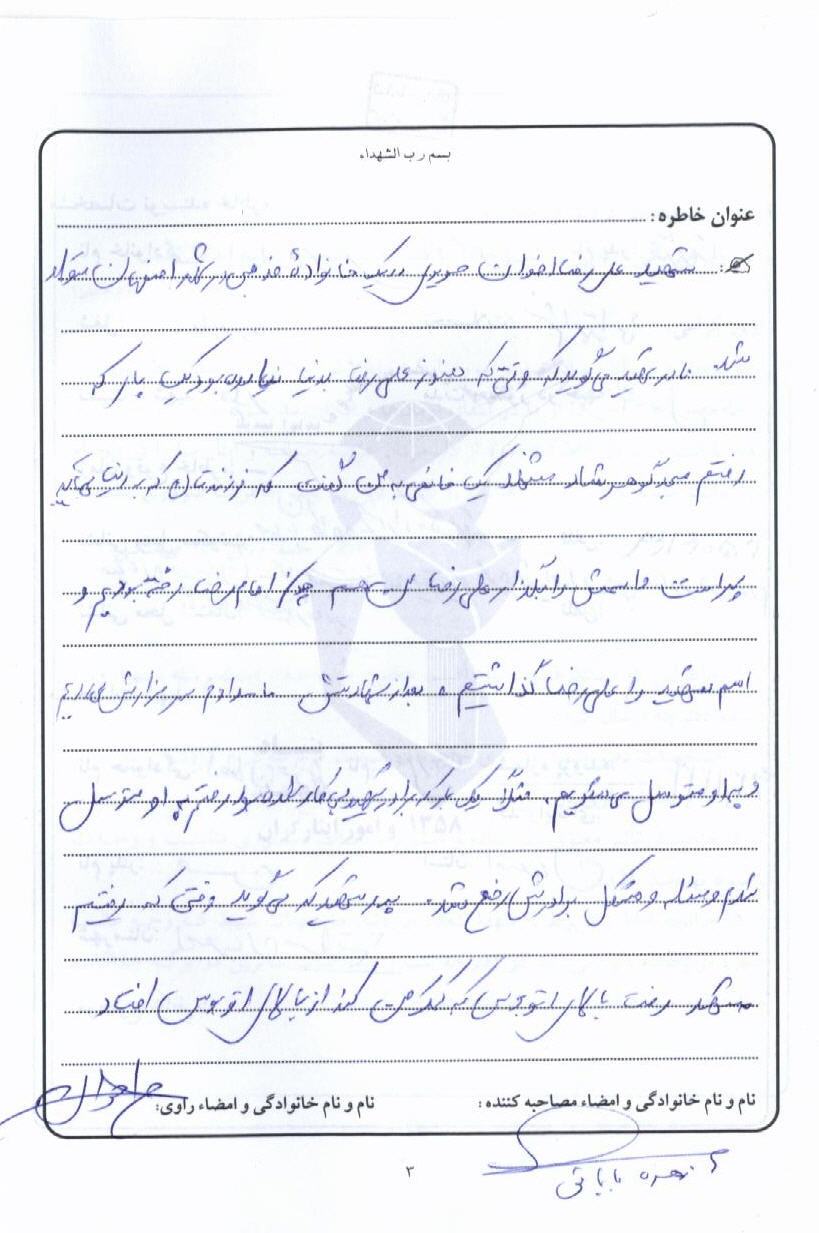 بسم رب الشهداء
عنوان خاطره :
شهید علی رضا اخوان در یک خانواده مذهبی در شهر اصفهان متولد
شد. مادر شهید می گوید که وقتی که هنوز علی رضا بدنیا نیامده بود یک بار که
رفتم مسجد گوهرشاد مشهد یک خانمی به من گفت که فرزندتان که به دنیا می آید
پسر است و اسمش را بگذار علی رضا من هم چون امام رضا رفته بودیم و
اسم شهید را علی رضا گذاشتیم. بعد از شهادتش ما مدام سر مزارش می رویم
و به او متوسل می شویم. مثلاً یک بار که برادر شهید بی کار شده بود رفتم به او متوسل
شدم و مسئله و مشکل برادرش رفع شد. پدر شهید که می گوید وقتی که رفتیم
مشهد رفت بالای اتوبوس که کمک کند از بالای اتوبوس افتاد
نام و نام خانوادگی و امضاء مصاحبه کننده :
نام و نام خانوادگی و امضاء راوی:
زهره بابائی
۳